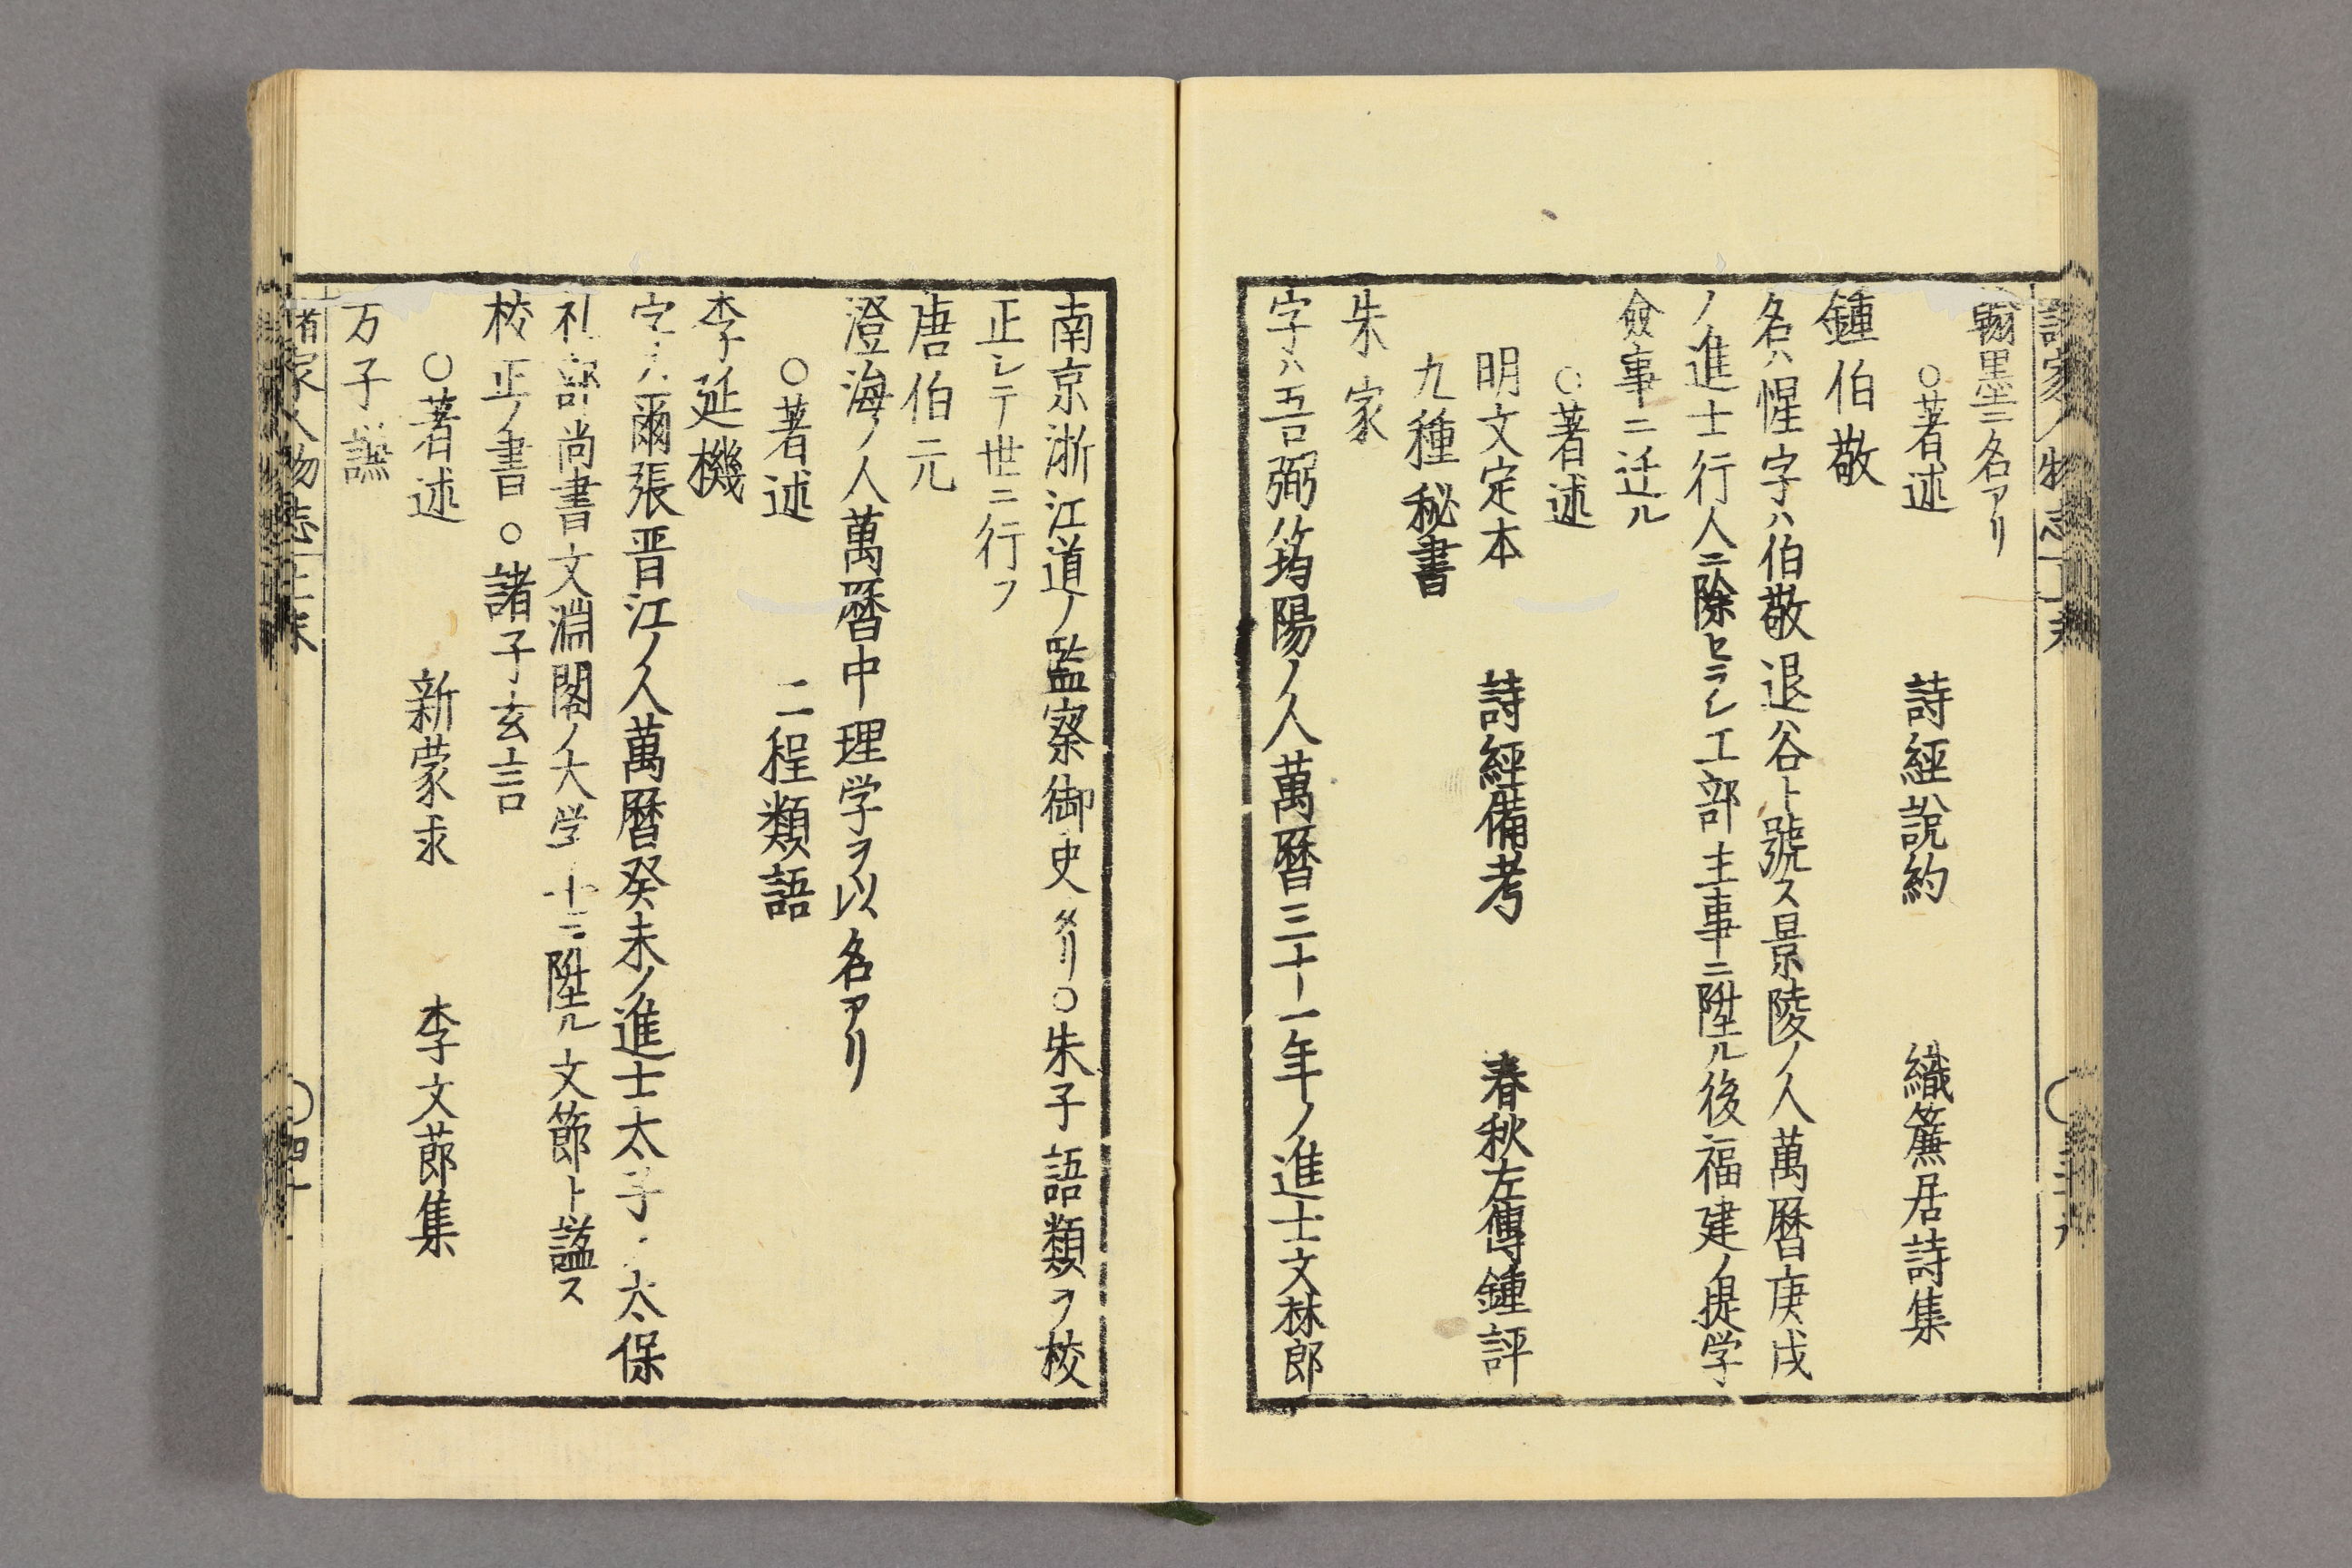 翰墨ニ名アリ
○著述 詩經說約 織簾居詩集
鍾伯敬
名ハ惺字ハ伯敬退谷ト號ス景陵ノ人萬曆庚戌
ノ進士行人ニ除セラレ工部主事ニ陞ル後福建ノ提学
僉事ニ迁ル
○著述
明文定本 詩經備考 春秋左傳鍾評
九種秘書
朱家
字ハ吾弼筠陽ノ人萬曆三十一年ノ進士文林郎
南京浙江道ノ監察御史タリ○朱子語類ヲ校
正レテ世ニ行フ
唐伯元
澄海ノ人萬曆中理学ヲ以名アリ
○著述 二程類語
李延機
字ハ爾張晋江ノ人萬曆癸未ノ進士太子太保
礼部尚書文淵閣ノ大学士ニ陞ル文節ト諡ス
校正ノ書○諸子玄言
○著述 新蒙求 李文莭集
万子
諸家人物志